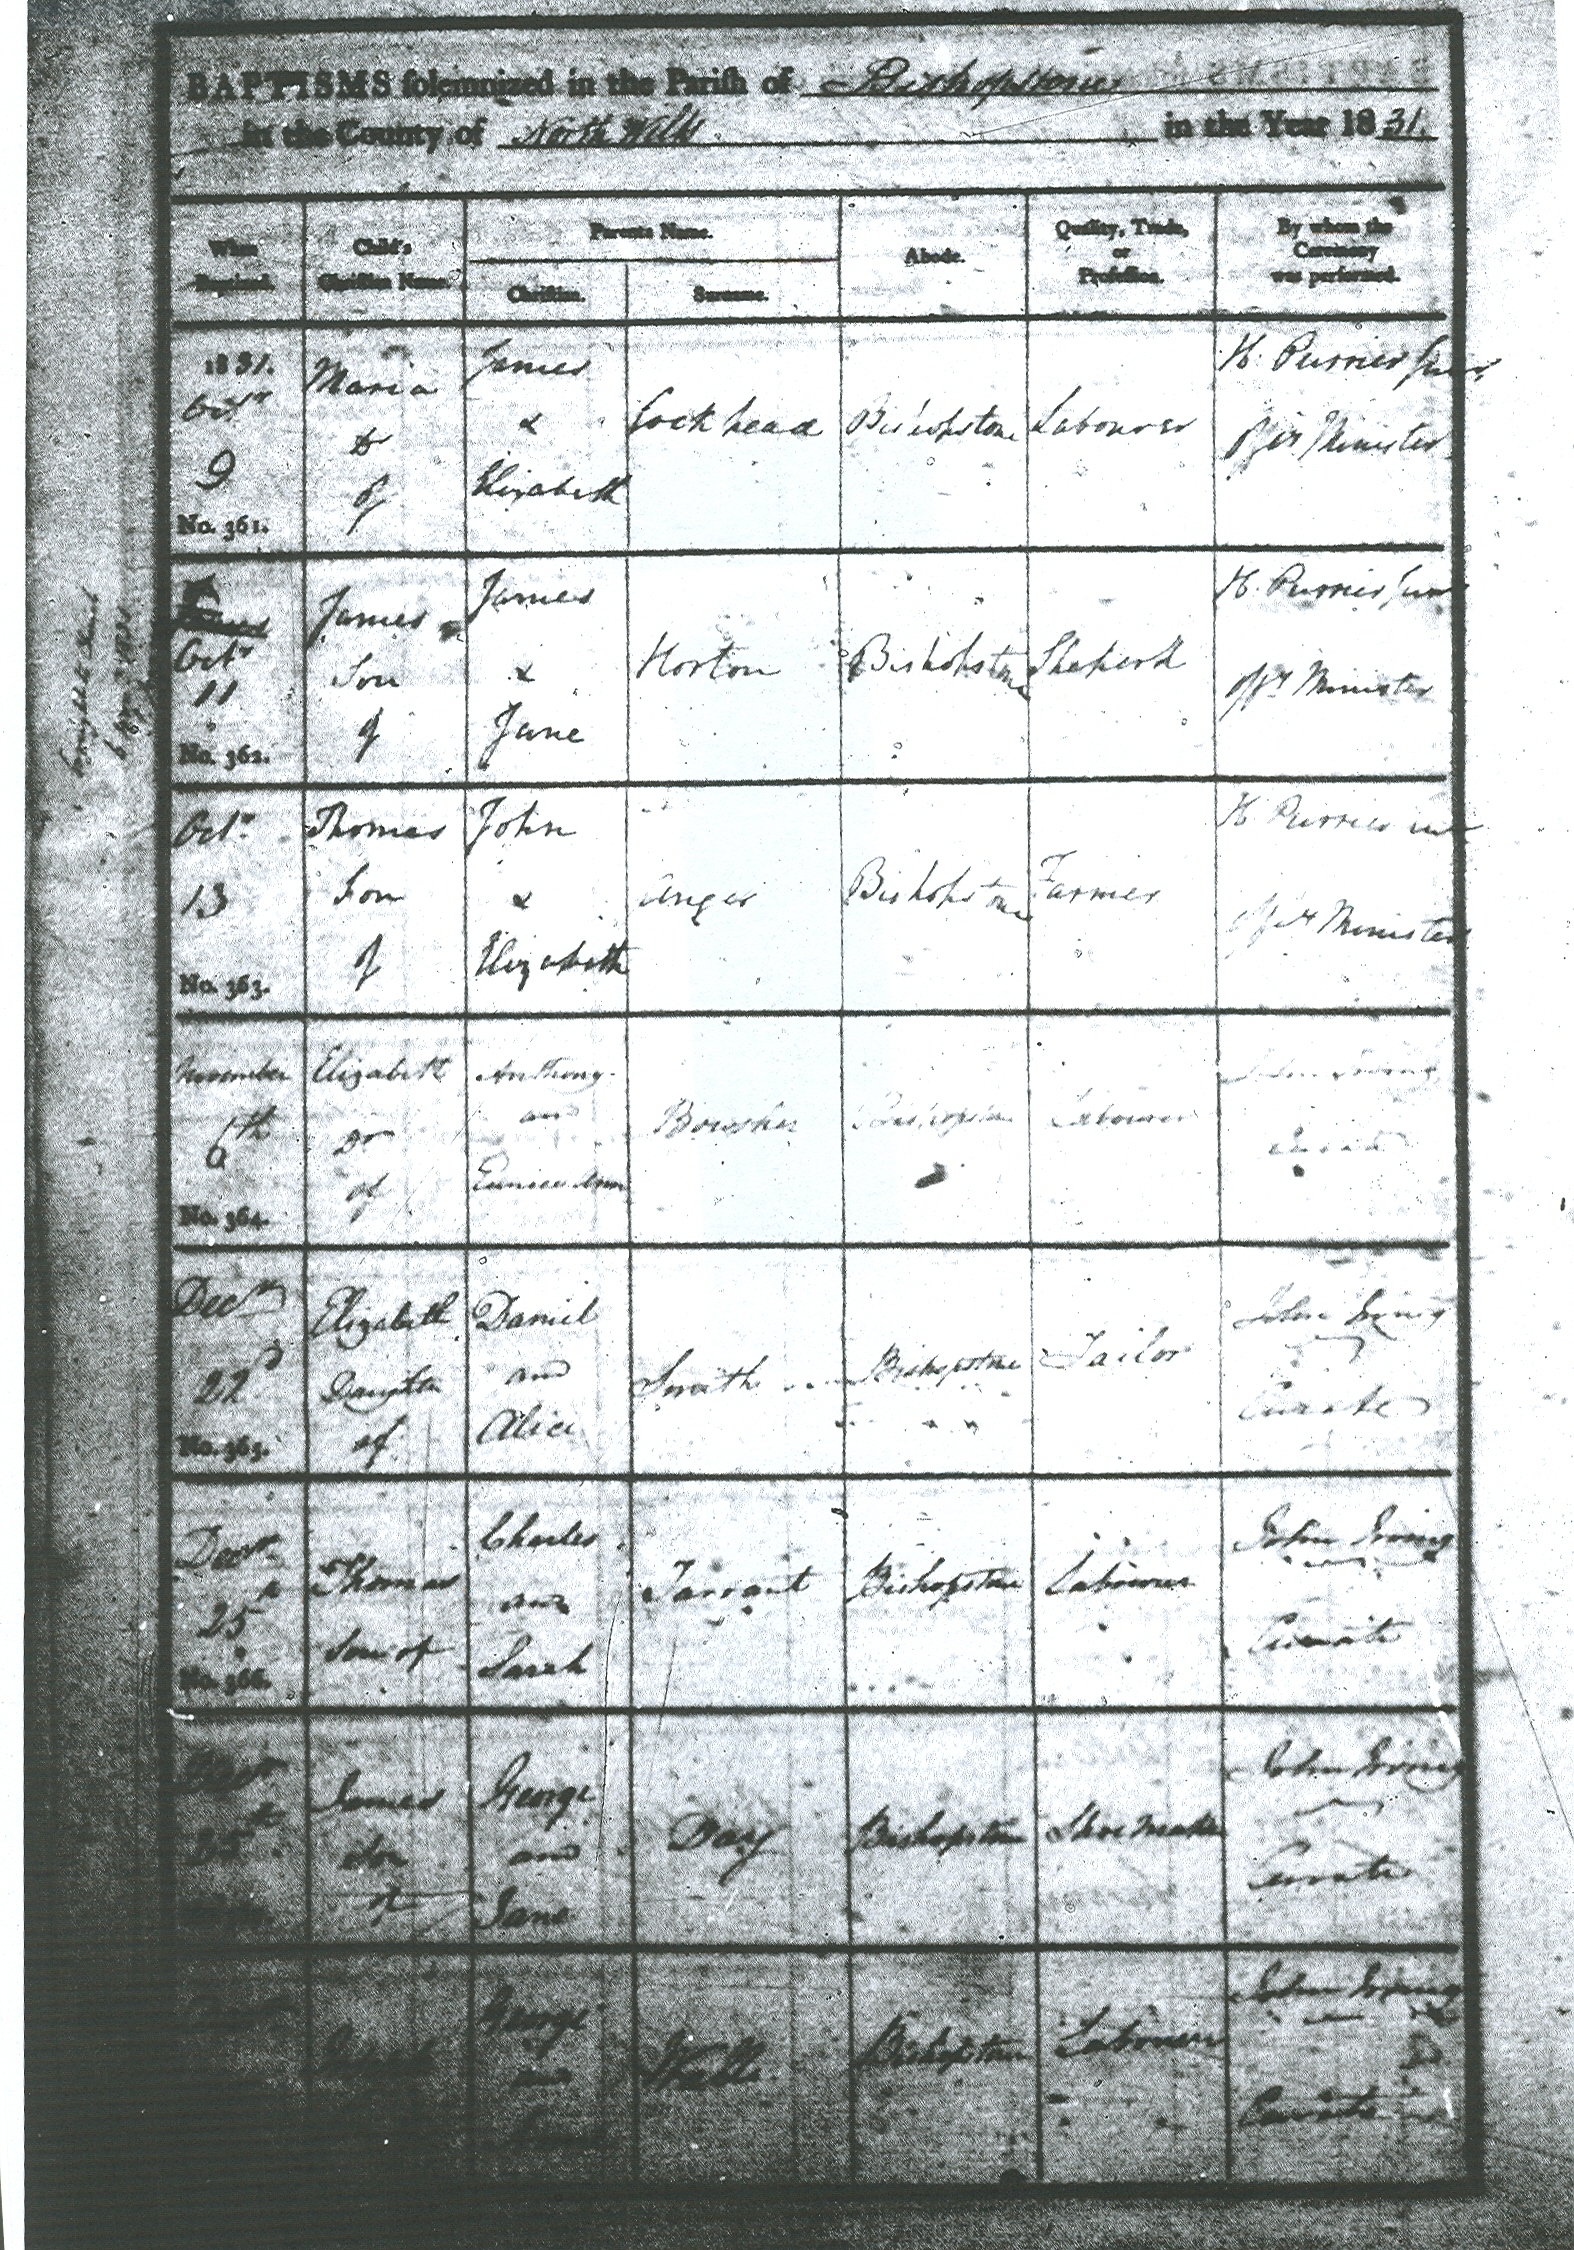 BAPTISMS solemnized in the Parish of Bishopstone
in the County of North Wilts in the Year 1831.
When Baptized. Child's Christian Name. Parents Name. Abode. Quality, Trade, or Profession. By whom the Ceremony was performed.
Christian. Surname.
1831.
Octr
9
No. 361.
Maria
Dr
of
James
&
Elizabeth
Lockhead
Bishopstone
Labourer
H. Purrier
Minister
Octr
11
No. 362.
James
Son
of
James
&
Jane
Horton
Bishopstone
Sheperd
H. Purrier
Minister
Octr
13
No. 363.
Thomas
Son
of
John
&
Elizabeth
Anger
Bishopstone
Farmer
H. Purrier
Minister
November
6th
No. 364.
Elizabeth
Dr
of
Anthony
and
Eunice Ann
Bowsher
Bishopstone
Labourer
John Irving
Curate
Decr
22d
No. 365.
Elizabeth
Daughter
of
Daniel
and
Alice
Smith
Bishopstone
Tailor
John Irving
Curate
Decr
25th
No. 366.
Thomas
Son of
Charles
and
Sarah
Tarrant
Bishopstone
Labourer
John Irving
Curate
Decr
25th
James
Son
of
George
and
Jane
Day
Bishopstone
Shoemaker
John Irving
Curate
George
and
Bishopstone
Labourer
John Irving
Curate